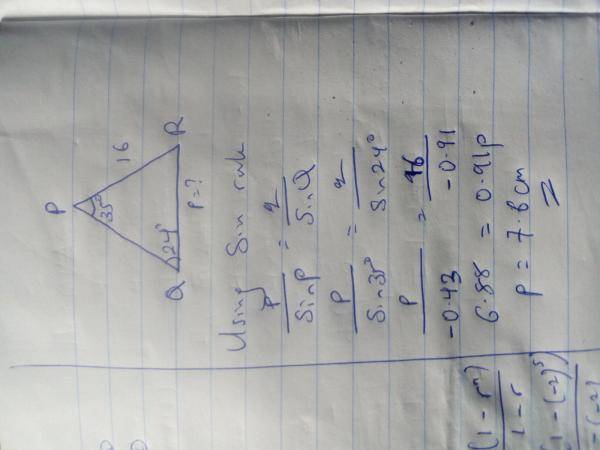 P
35°
16
Q
24°
R
P = ?
Using Sin rule
P/SinP = q/SinQ
P/Sin35° = q/Sin24°
P/-0.43 = 16/-0.91
6.88 = 0.91p
P = 7.6 cm
(1 - r^n)/1 - r
(1 - (-2)^5)